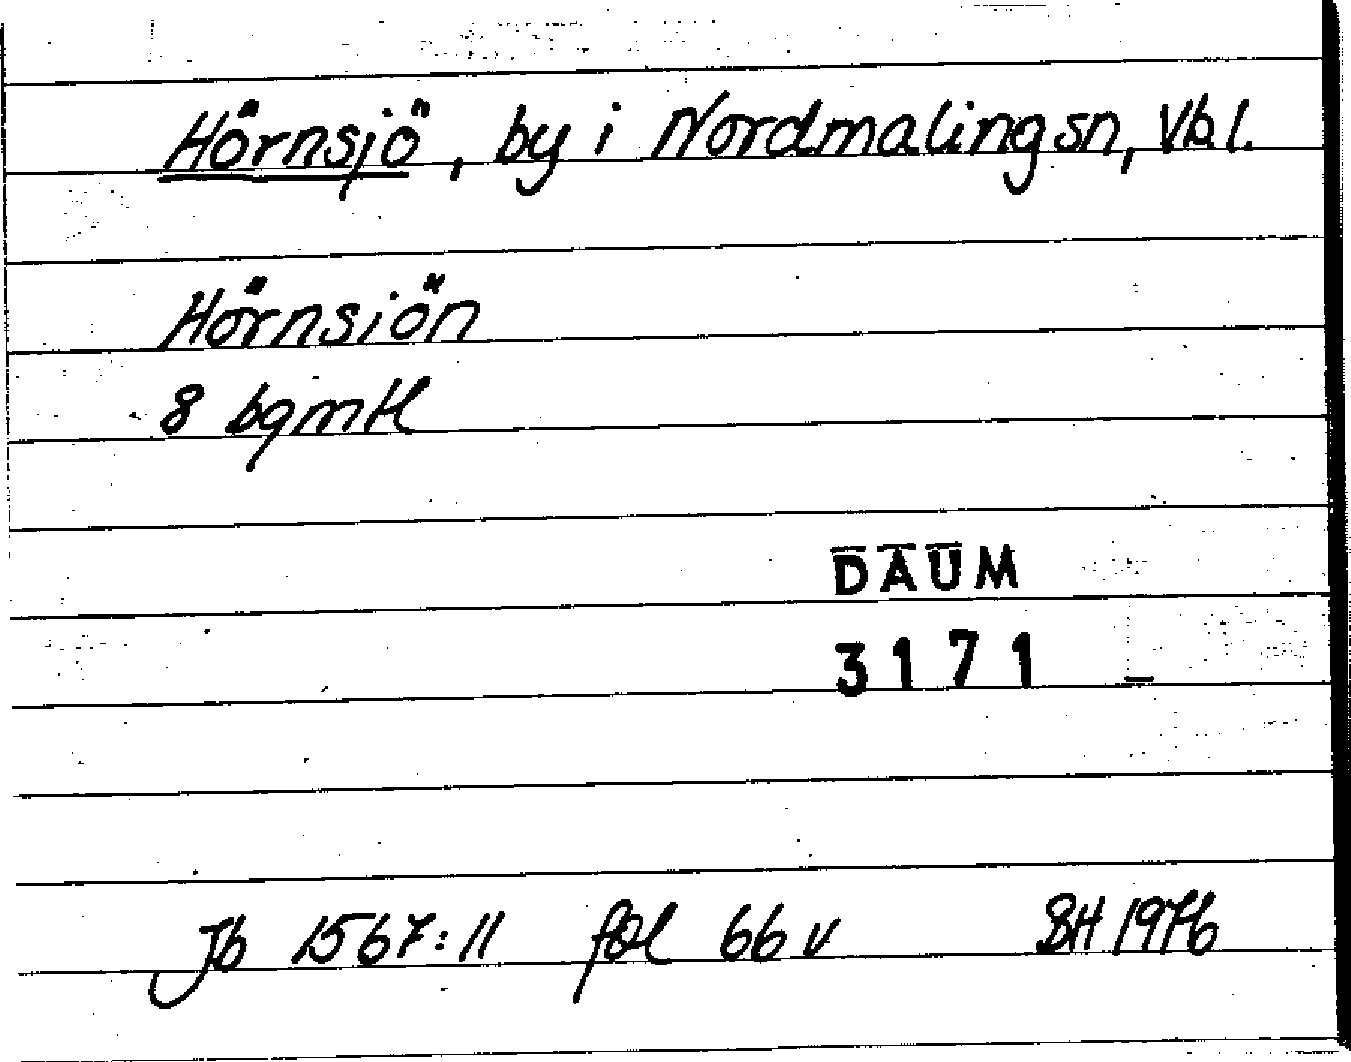 Hörnsjö, by i Nordmalingsn, Vbl.
Hörnsiön
8 bgmtl
DAUM
3171
Jb 1567:11 fol 66 v BH 1976